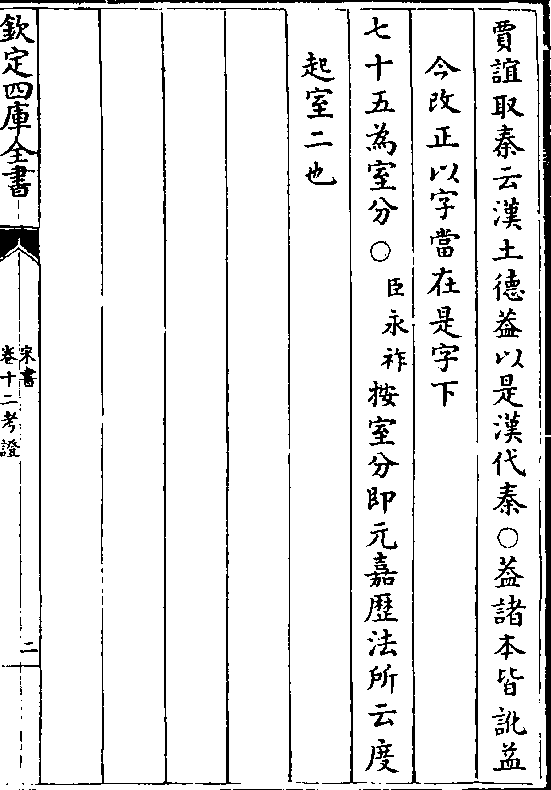 賈誼取秦云漢土德葢以是漢代秦○葢諸本皆訛益
今改正以字當在是字下
七十五為室分○臣永祚按室分即元嘉歴法所云度
起室二也
欽定四庫全書
宋書
卷十二考證
二